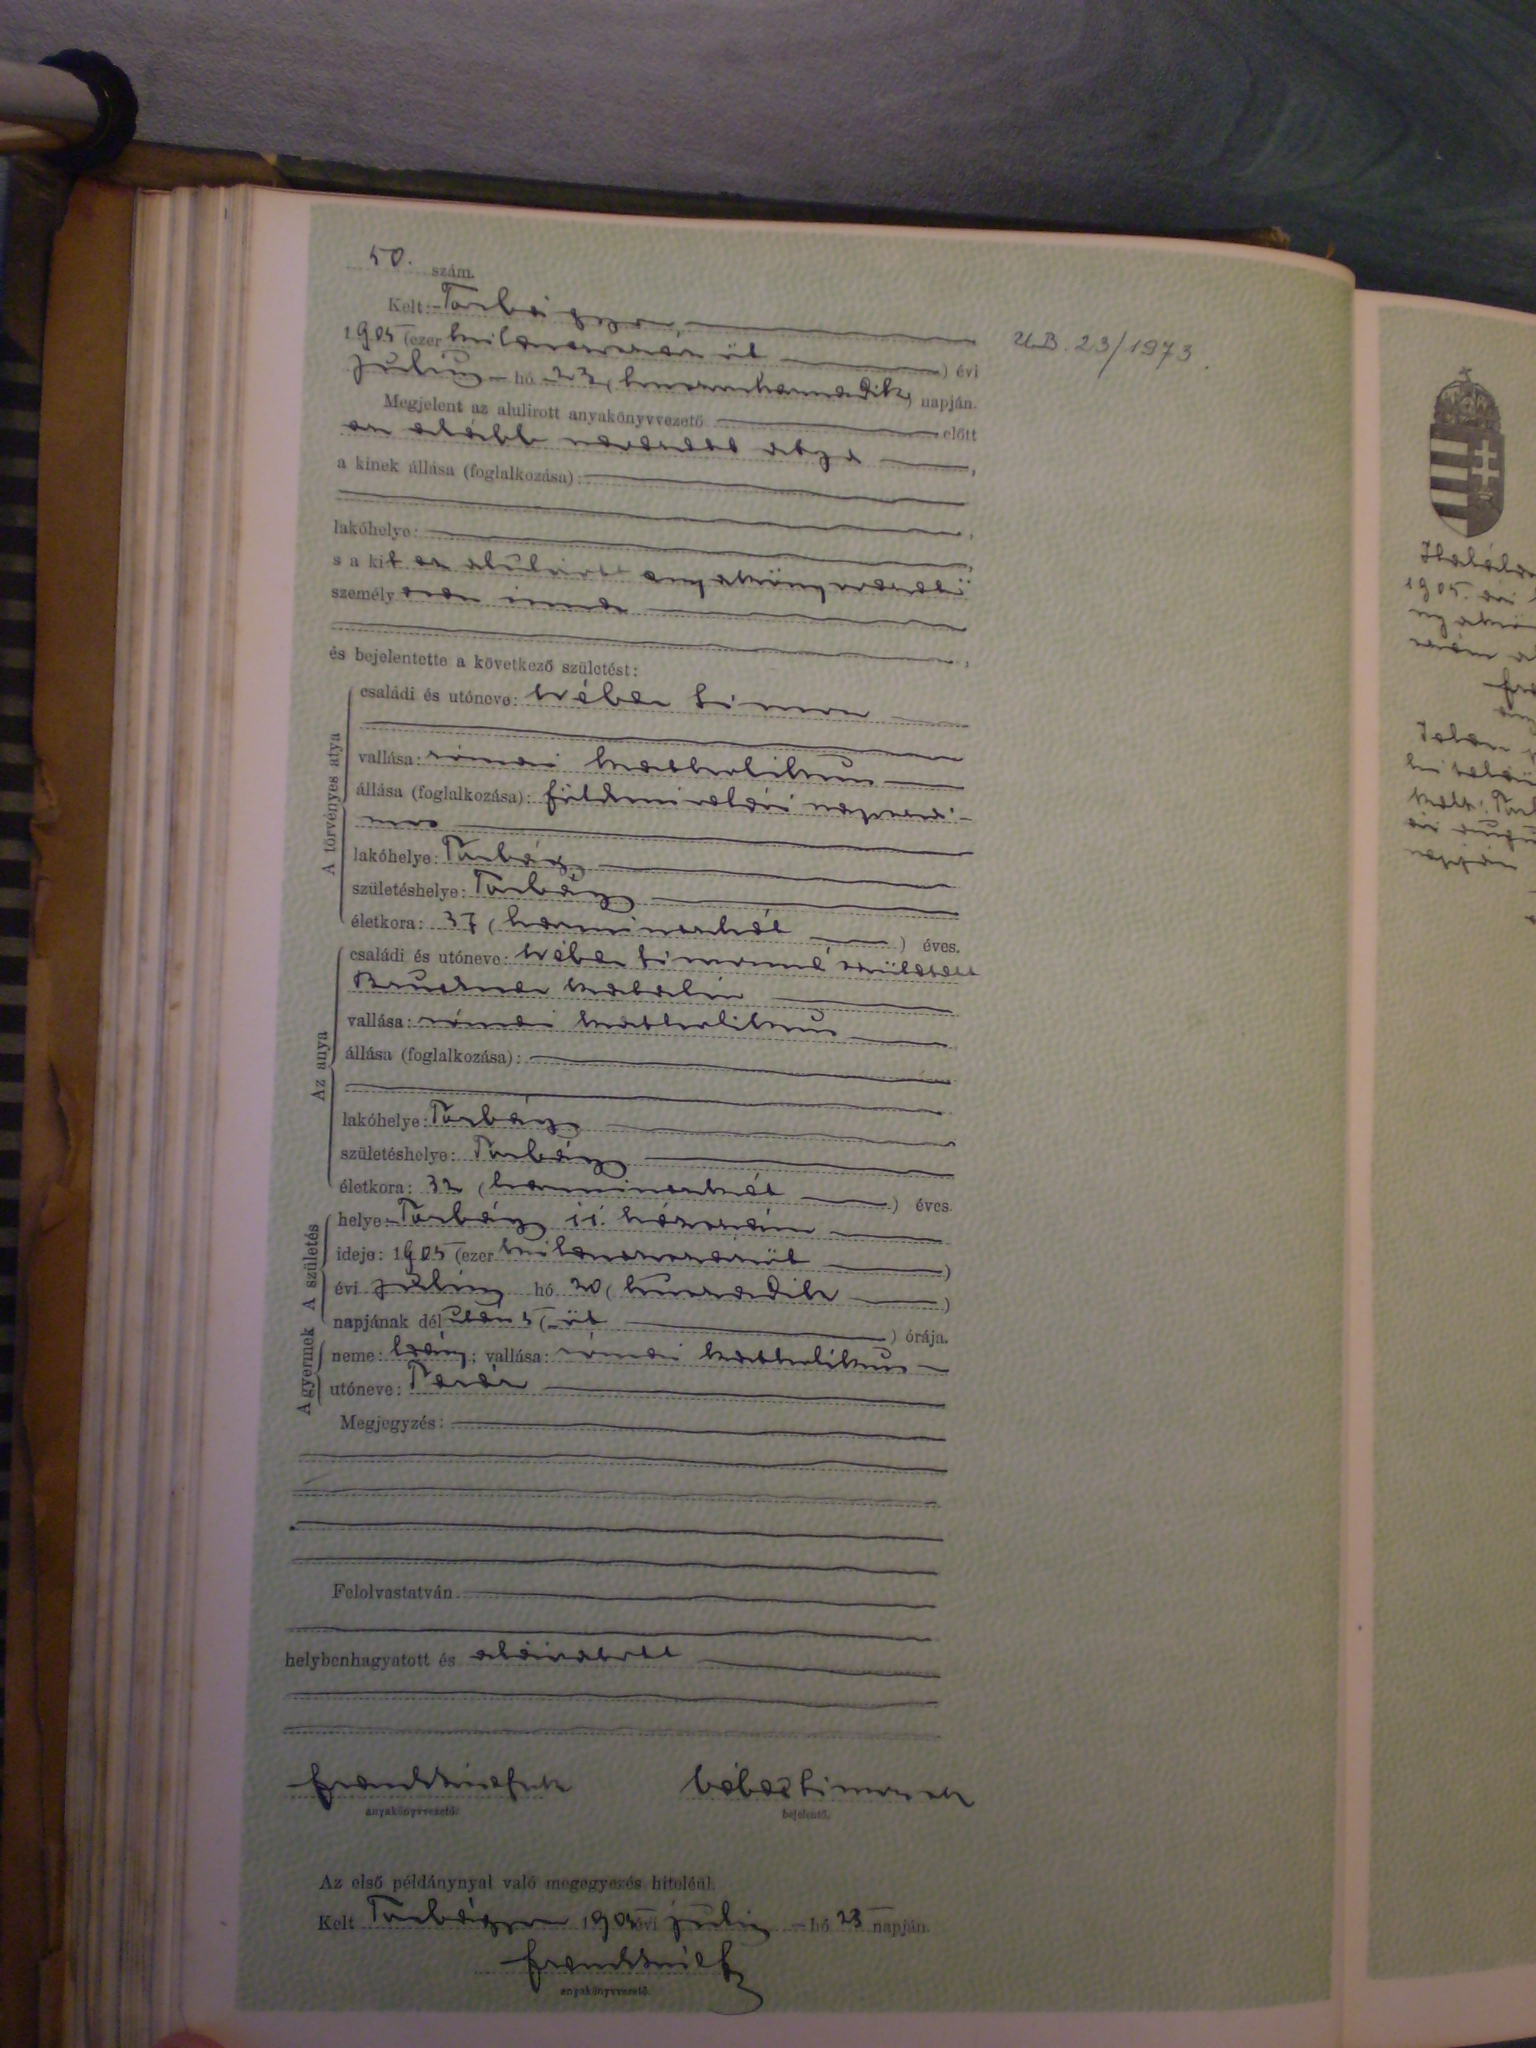 50. szám.
Kelt: Torbágyon,
1905 (ezer kilencszázöt) évi
julius hó 23 (huszonharmadik) napján.
Megjelent az alulirott anyakönyvvezető előtt
az alább nevezett atya,
a kinek állása (foglalkozása):
lakóhelye:
s a kit az alulirott anyakönyvvezető
személyesen ismer
és bejelentette a következő születést:
A törvényes atya
családi és utóneve: Wéber Simon
vallása: római katholikus
állása (foglalkozása): földmivelési napszá-
mos
lakóhelye: Torbágy
születéshelye: Torbágy
életkora: 37 (harminczhét) éves.
Az anya
családi és utóneve: Wéber Simonné született
Bruckner Katalin
vallása: római katholikus
állása (foglalkozása):
lakóhelye: Torbágy
születéshelye: Torbágy
életkora: 32 (harminczkét) éves.
A születés
helye: Torbágy házszám
ideje: 1905 (ezer kilencszázöt)
évi julius hó 20 (huszadik)
napjának délután 5 (öt) órája.
A gyermek
neme: leány; vallása: római katholikus
utóneve: Teréz
Megjegyzés:
Felolvastatván
helybenhagyatott és aláiratott
anyakönyvvezető.
bejelentő.
Az első példánynyal való megegyezés hiteléül.
Kelt Torbágyon 1905 évi julius hó 23 napján.
anyakönyvvezető.
U.B. 23/1973.
1905. évi